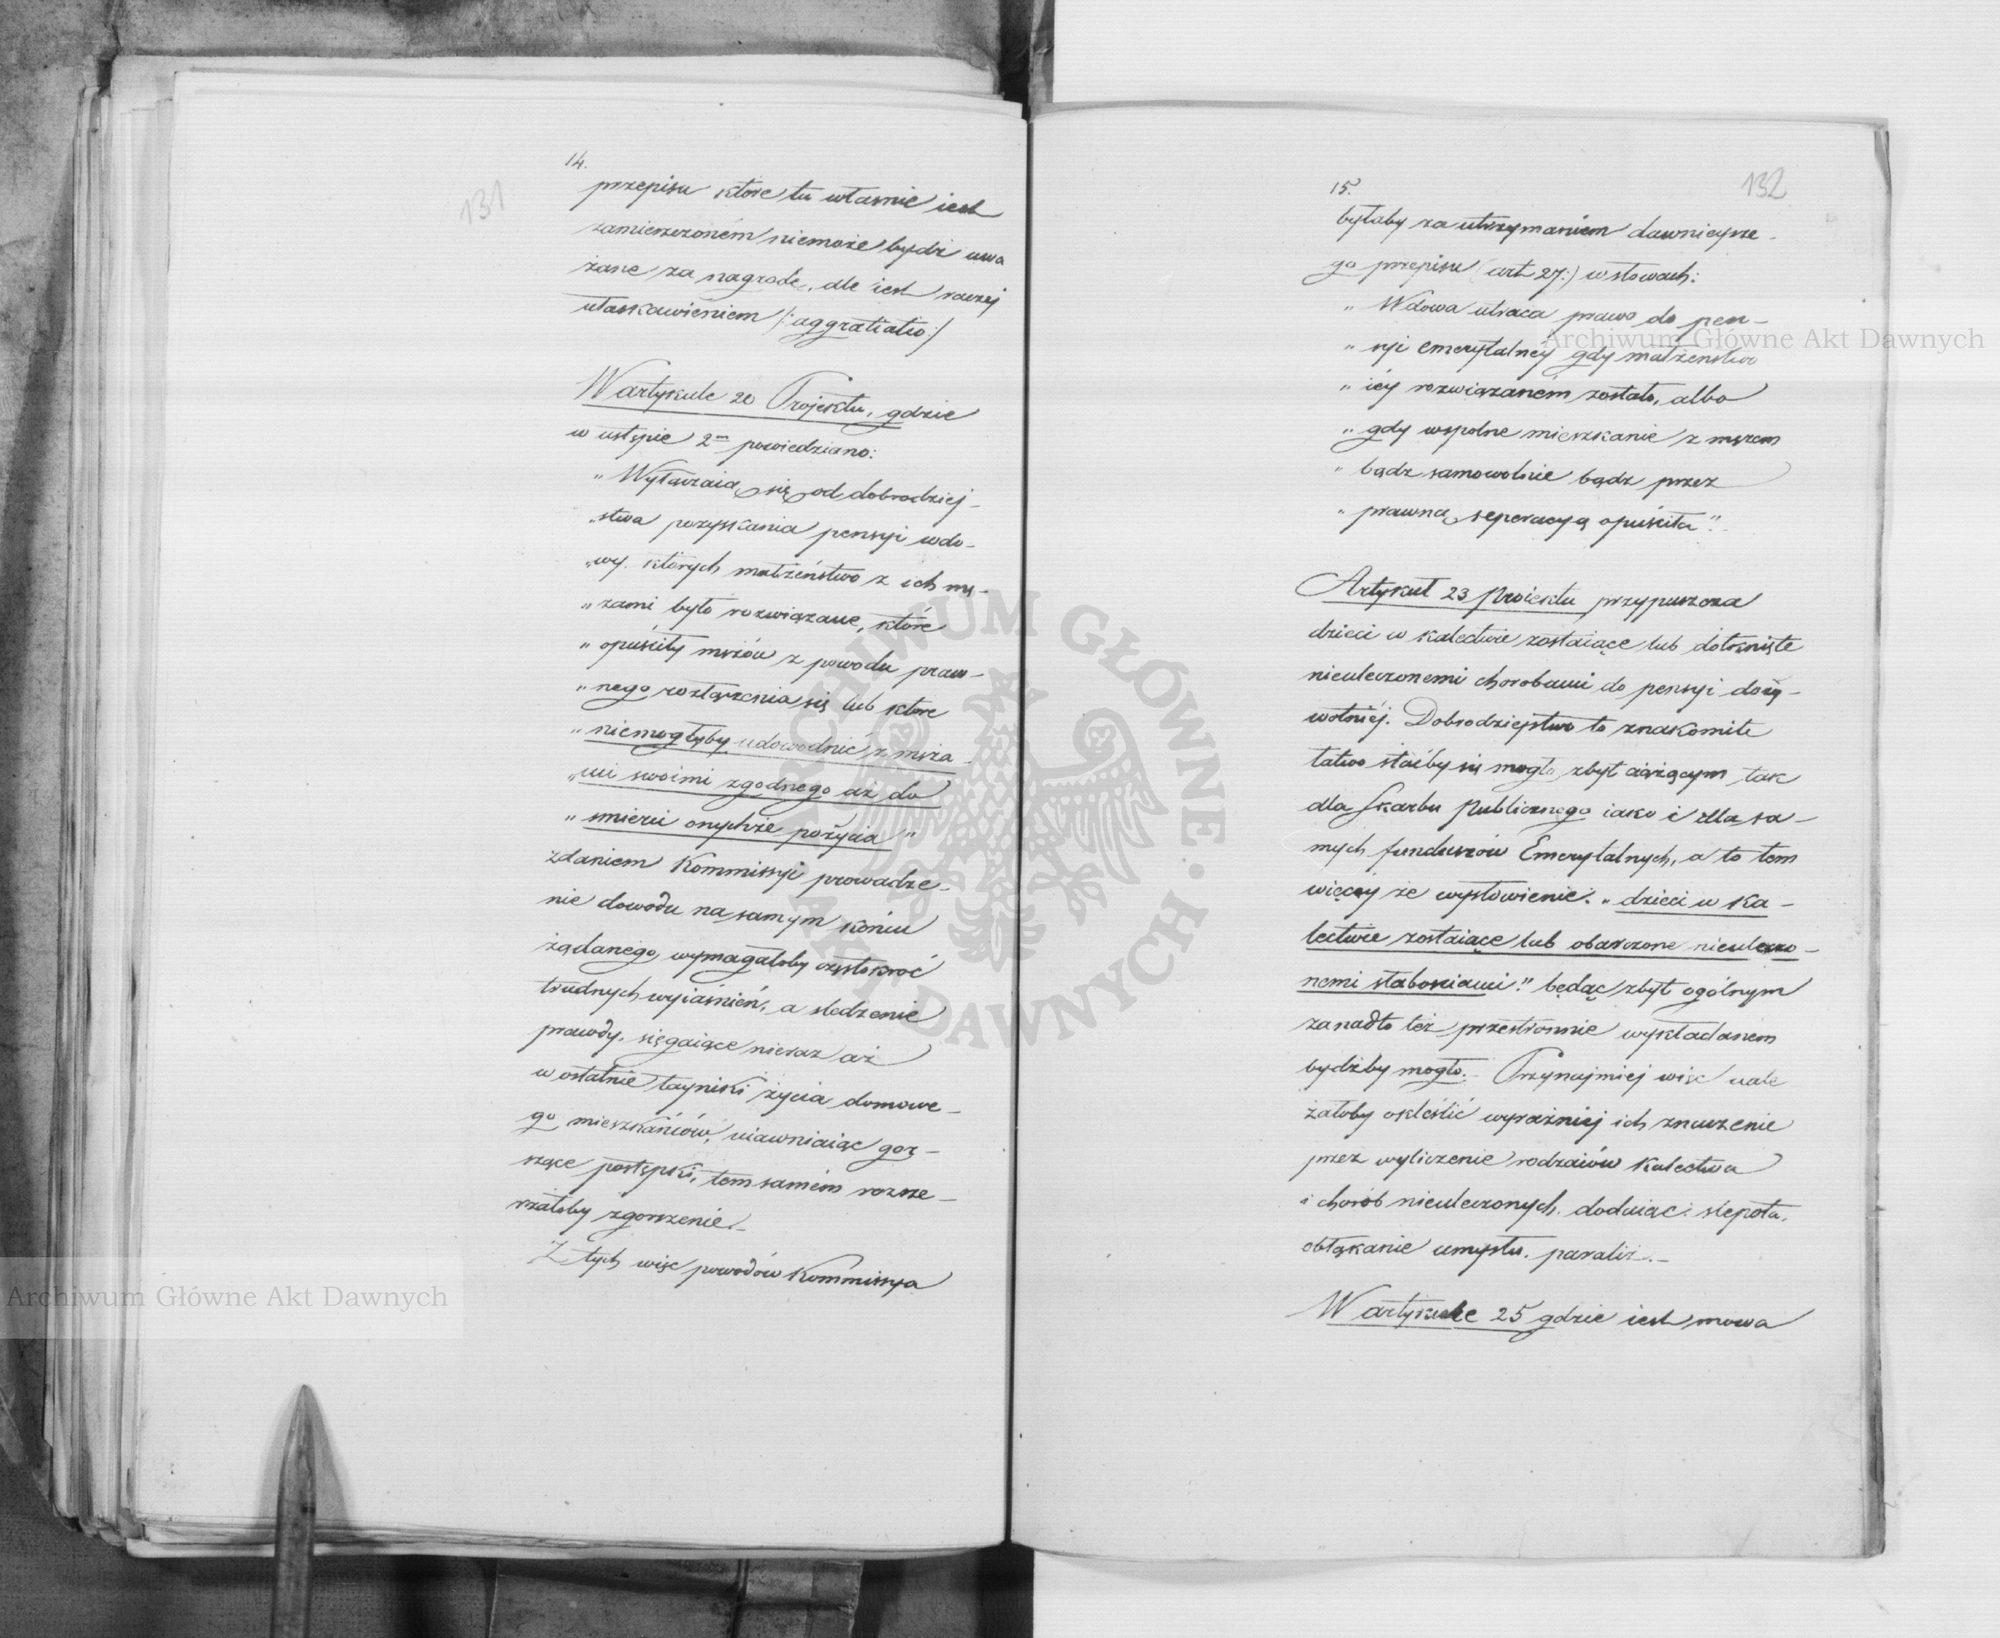 131
14.
przepisu które tu własnie iest
zamierzoném niemoże bydź uwa
żane za nagrodę, ale iest raczej
ułaskawieniem /: aggratiatio :/
W artykule 20 Projektu, gdzie
w ustępie 2m powiedziano:
„Wyłączaią się od dobrodziej-
„stwa pozyskania pensyi wdo-
„wy, których małżeństwo z ich mę-
„żami było rozwiązane, które
„opuściły mężów z powodu praw-
„nego rozłączenia się lub które
„niemogłyby udowodnić z męża-
„mi swoimi zgodnego aż do
„smierci onychże pożycia"
zdaniem Kommissyi prowadze-
nie dowodu na samym końcu
żądanego, wymagałoby częstokroć
trudnych wyiaśnień, a sledzenie
prawdy, sięgaiące nieraz aż
w ostatnie tayniki życia domowe-
go mieszkańców, uiawniaiąc gor-
szące postępki, tem samém rozsze-
rzałoby zgorszenie.-
Z tych więc powodów Kommissya
132
15.
byłaby za utrzymaniem dawnieysze-
go przepisu (art 27:) w słowach:
„Wdowa utraca prawo do pen-
„syi emerytalnéy gdy małżeństwo
„iéy rozwiązaném zostało, albo
„gdy wspolne mieszkanie z mężem
„bądz samowolnie bądz przez
„prawną seperacyą opuściła".-
Artykuł 23 Proiektu przypuszcza
dzieci w kalectwie zostaiące lub dotknięte
nieuleczonemi chorobami do pensyi doży-
wotniéj. Dobrodziejstwo to znakomite
łatwo stać by się mogło, zbyt ciążącym tak
dla Skarbu Publicznego iako i dla sa-
mych funduszów Emerytalnych, a to tem
więcéy że wysłowienie: „dzieci w ka-
lectwie zostaiące lub obarczone nieuleczo-
nemi słabosciami" będąc zbyt ogólnym
zanadto też przestronnie wykładanem
bydźby mogło.- Przynajmiej więc nale
żałoby okleślić wyraźniej ich znaczenie
przez wyliczenie rodzaiów kalectwa
i chorób nieuleczonych. dodaiąc: slepota,
obłąkanie umysłu, paraliż.-
W artykule 25 gdzie iest mowa
Archiwum Główne Akt Dawnych
Archiwum Główne Akt Dawnych
ARCHIWUM GŁÓWNE · AKT DAWNYCH